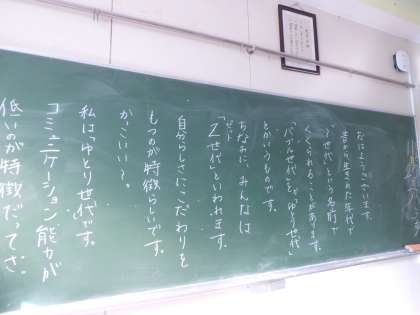 おはようございます。
昔から生まれた年代で
「?世代」という名前で
くくられることがあります。
「バブル世代」とか「ゆとり世代」
とかいうものです。
ちなみに、みんなは
「Z世代」といわれます。
ゼット
自分らしさにこだわりを
もつのが特徴らしいです。
かっこいい〜。
私は「ゆとり世代」です。
コミュニケーション能力が
低いのが特徴だってさ。